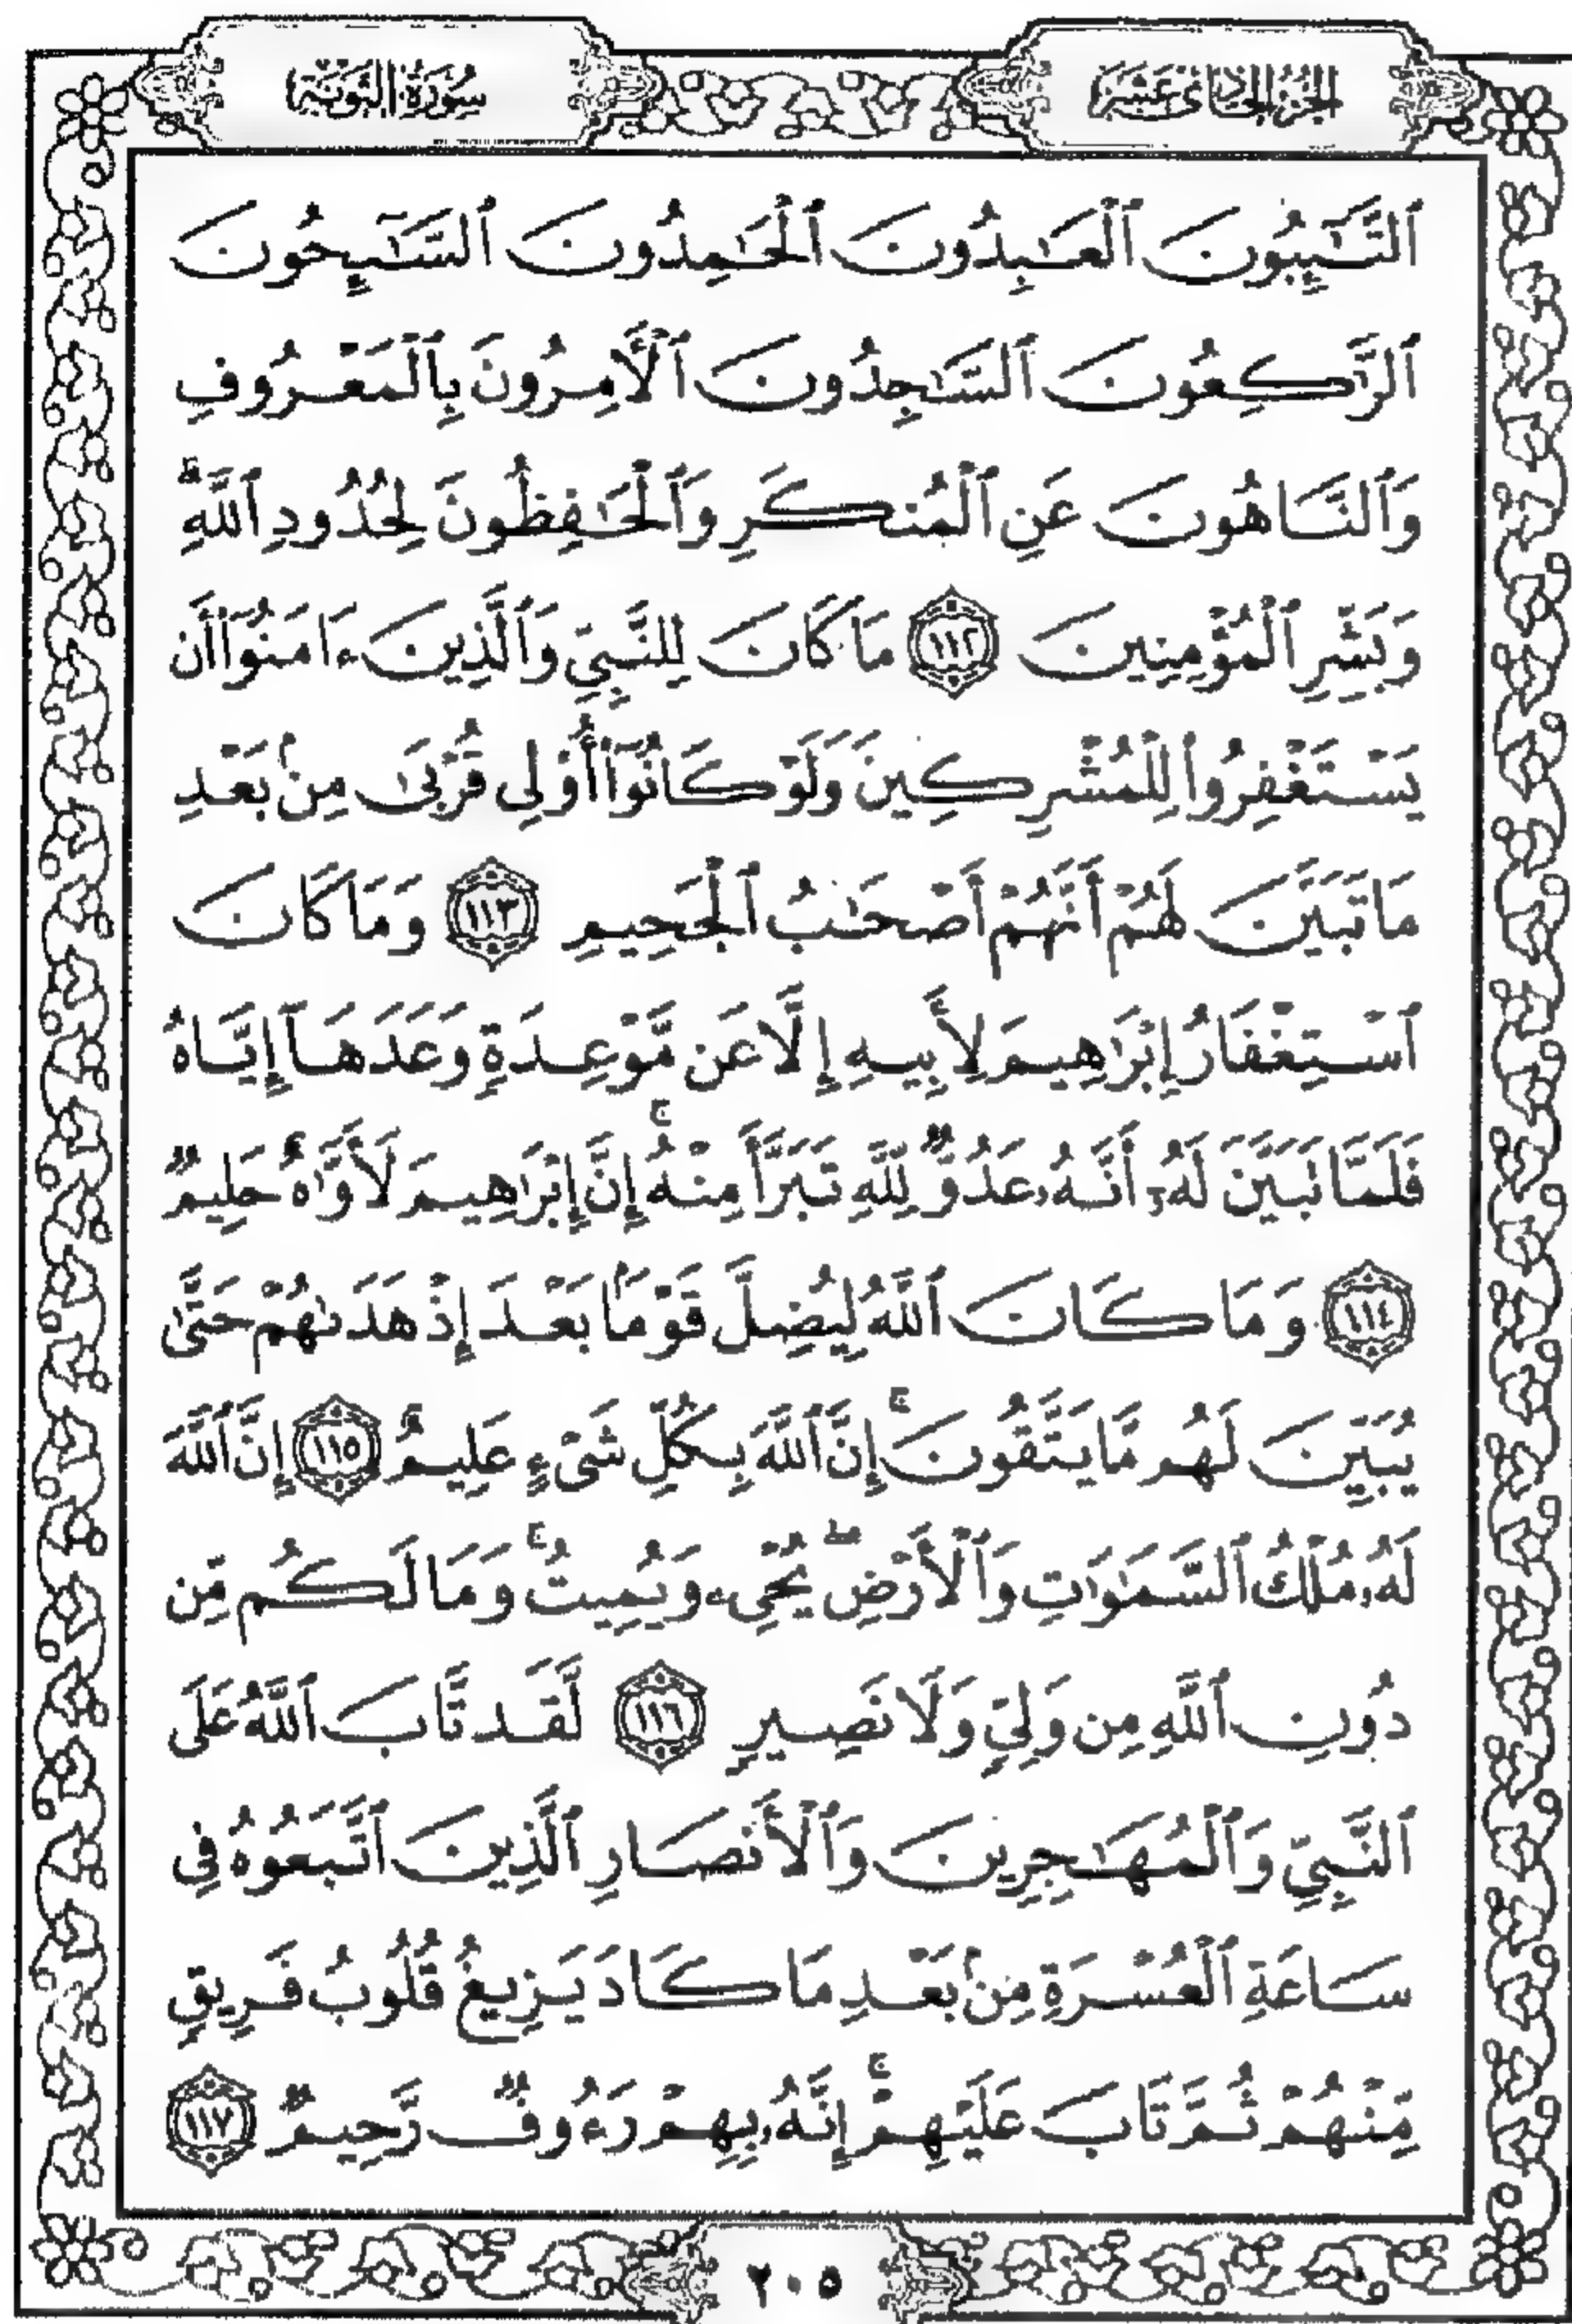 الجزء الحادي عشر
سورة التوبة
ٱلتَّٰٓئِبُونَ ٱلْعَٰبِدُونَ ٱلْحَٰمِدُونَ ٱلسَّٰٓئِحُونَ
ٱلرَّٰكِعُونَ ٱلسَّٰجِدُونَ ٱلْأَمِرُونَ بِٱلْمَعْرُوفِ
وَٱلنَّاهُونَ عَنِ ٱلْمُنكَرِ وَٱلْحَٰفِظُونَ لِحُدُودِ ٱللَّهِۗ
وَبَشِّرِ ٱلْمُؤْمِنِينَ ١١٢ مَا كَانَ لِلنَّبِيِّ وَٱلَّذِينَ ءَامَنُوٓا۟ أَن
يَسْتَغْفِرُوا۟ لِلْمُشْرِكِينَ وَلَوْ كَانُوٓا۟ أُو۟لِى قُرْبَىٰ مِنۢ بَعْدِ
مَا تَبَيَّنَ لَهُمْ أَنَّهُمْ أَصْحَٰبُ ٱلْجَحِيمِ ١١٣ وَمَا كَانَ
ٱسْتِغْفَارُ إِبْرَٰهِيمَ لِأَبِيهِ إِلَّا عَن مَّوْعِدَةٍ وَعَدَهَآ إِيَّاهُ
فَلَمَّا تَبَيَّنَ لَهُۥٓ أَنَّهُۥ عَدُوٌّ لِّلَّهِ تَبَرَّأَ مِنْهُۚ إِنَّ إِبْرَٰهِيمَ لَأَوَّٰهٌ حَلِيمٌ
١١٤ وَمَا كَانَ ٱللَّهُ لِيُضِلَّ قَوْمًۢا بَعْدَ إِذْ هَدَىٰهُمْ حَتَّىٰ
يُبَيِّنَ لَهُم مَّا يَتَّقُونَۚ إِنَّ ٱللَّهَ بِكُلِّ شَىْءٍ عَلِيمٌ ١١٥ إِنَّ ٱللَّهَ
لَهُۥ مُلْكُ ٱلسَّمَٰوَٰتِ وَٱلْأَرْضِۖ يُحْىِۦ وَيُمِيتُۚ وَمَا لَكُم مِّن
دُونِ ٱللَّهِ مِن وَلِىٍّ وَلَا نَصِيرٍ ١١٦ لَّقَد تَّابَ ٱللَّهُ عَلَى
ٱلنَّبِىِّ وَٱلْمُهَٰجِرِينَ وَٱلْأَنصَارِ ٱلَّذِينَ ٱتَّبَعُوهُ فِى
سَاعَةِ ٱلْعُسْرَةِ مِنۢ بَعْدِ مَا كَادَ يَزِيغُ قُلُوبُ فَرِيقٍ
مِّنْهُمْ ثُمَّ تَابَ عَلَيْهِمْۚ إِنَّهُۥ بِهِمْ رَءُوفٌ رَّحِيمٌ ١١٧
٢٠٥